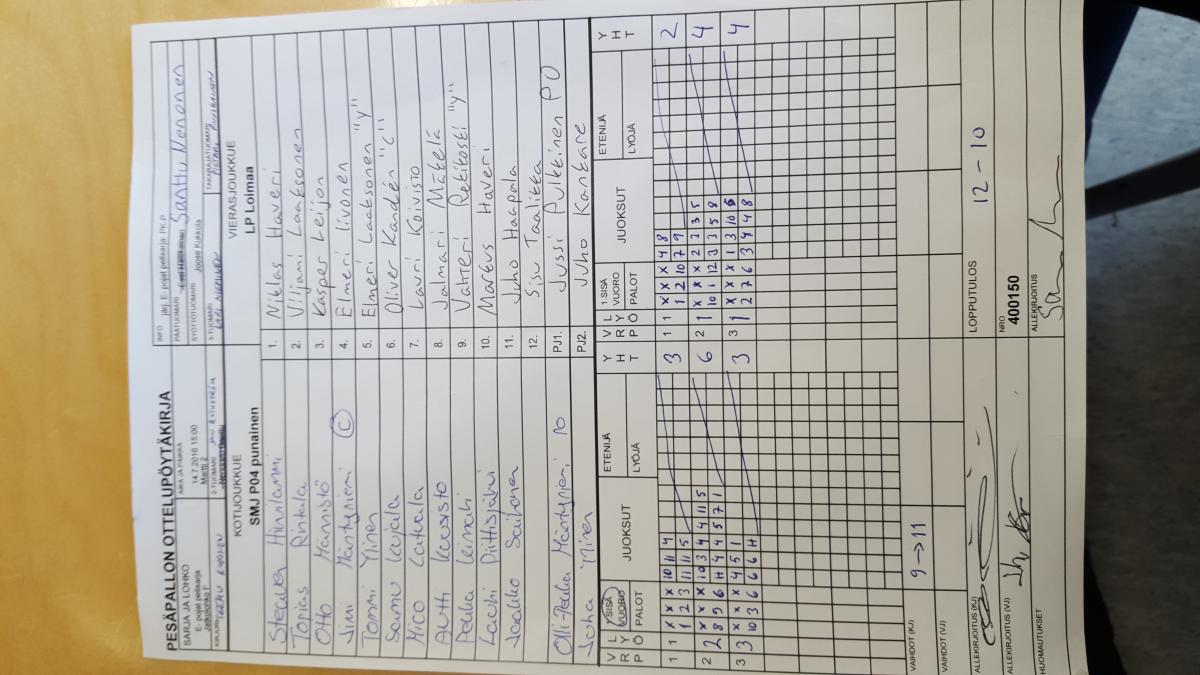 PESÄPALLON OTTELUPÖYTÄKIRJA
INFO järj. E-pojat pelisarja PK-P
SARJA JA LOHKO
E- pojat pelisarja
Jatkolohko F
AIKA JA PAIKKA
14.7.2016 15.00
Martti 2
PÄÄTUOMARI Santtu Nenonen
SYÖTTÖTUOMARI Joose Kukkola
KIRJURI
2-TUOMARI
3-TUOMARI
TAKARAJATUOMARI
KOTIJOUKKUE
SMJ P04 punainen
VIERASJOUKKUE
LP Loimaa
Hinnilammi 1. Niklas Haveri
Topias Rintala 2. Viljami Laaksonen
Otto Männistö 3. Kasper Leijon
Jimi Mäntyniemi C 4. Elmeri Iivonen
Tommi Ylinen 5. Elmeri Laaksonen "Y"
Samu Kujala 6. Oliver Kandén "C"
Mico Latvala 7. Lauri Koivisto
Antti 8. Jalmari Mäkelä
Pekka Leinahi 9. Valtteri Rekikoski "Y"
Lauri 10. Markus Haveri
Jaakko 11. Juho Haapala
12. Sisu Taalikka
Olli-Pekka Mäntynieni PO PJ1. Jussi Pulkkinen PO
Juha Ninen PJ2. Juho Kankare
V R P L Y Ö 1.SISÄ VUORO PALOT JUOKSUT ETENIJÄ LYÖJÄ Y H T V R P L Y Ö 1.SISÄ VUORO PALOT JUOKSUT ETENIJÄ LYÖJÄ Y H T
1 1 X X X 10 11 4 3 1 1 X X X 4 8 2
1 2 3 11 11 5 1 2 10 7 9
2 2 X X X 10 3 4 4 11 5 6 2 1 X X X 2 3 3 5 4
8 9 6 H 4 4 5 7 1 10 1 12 3 3 5 8
3 3 X X X 4 5 1 3 3 1 X X X 1 3 10 5 4
10 3 6 6 6 H 2 7 6 3 4 4 8
VAIHDOT (KJ) 9→11
VAIHDOT (VJ)
ALLEKIRJOITUS (KJ)
LOPPUTULOS 12-10
ALLEKIRJOITUS (VJ)
NRO
400150
HUOMAUTUKSET
ALLEKIRJOITUS